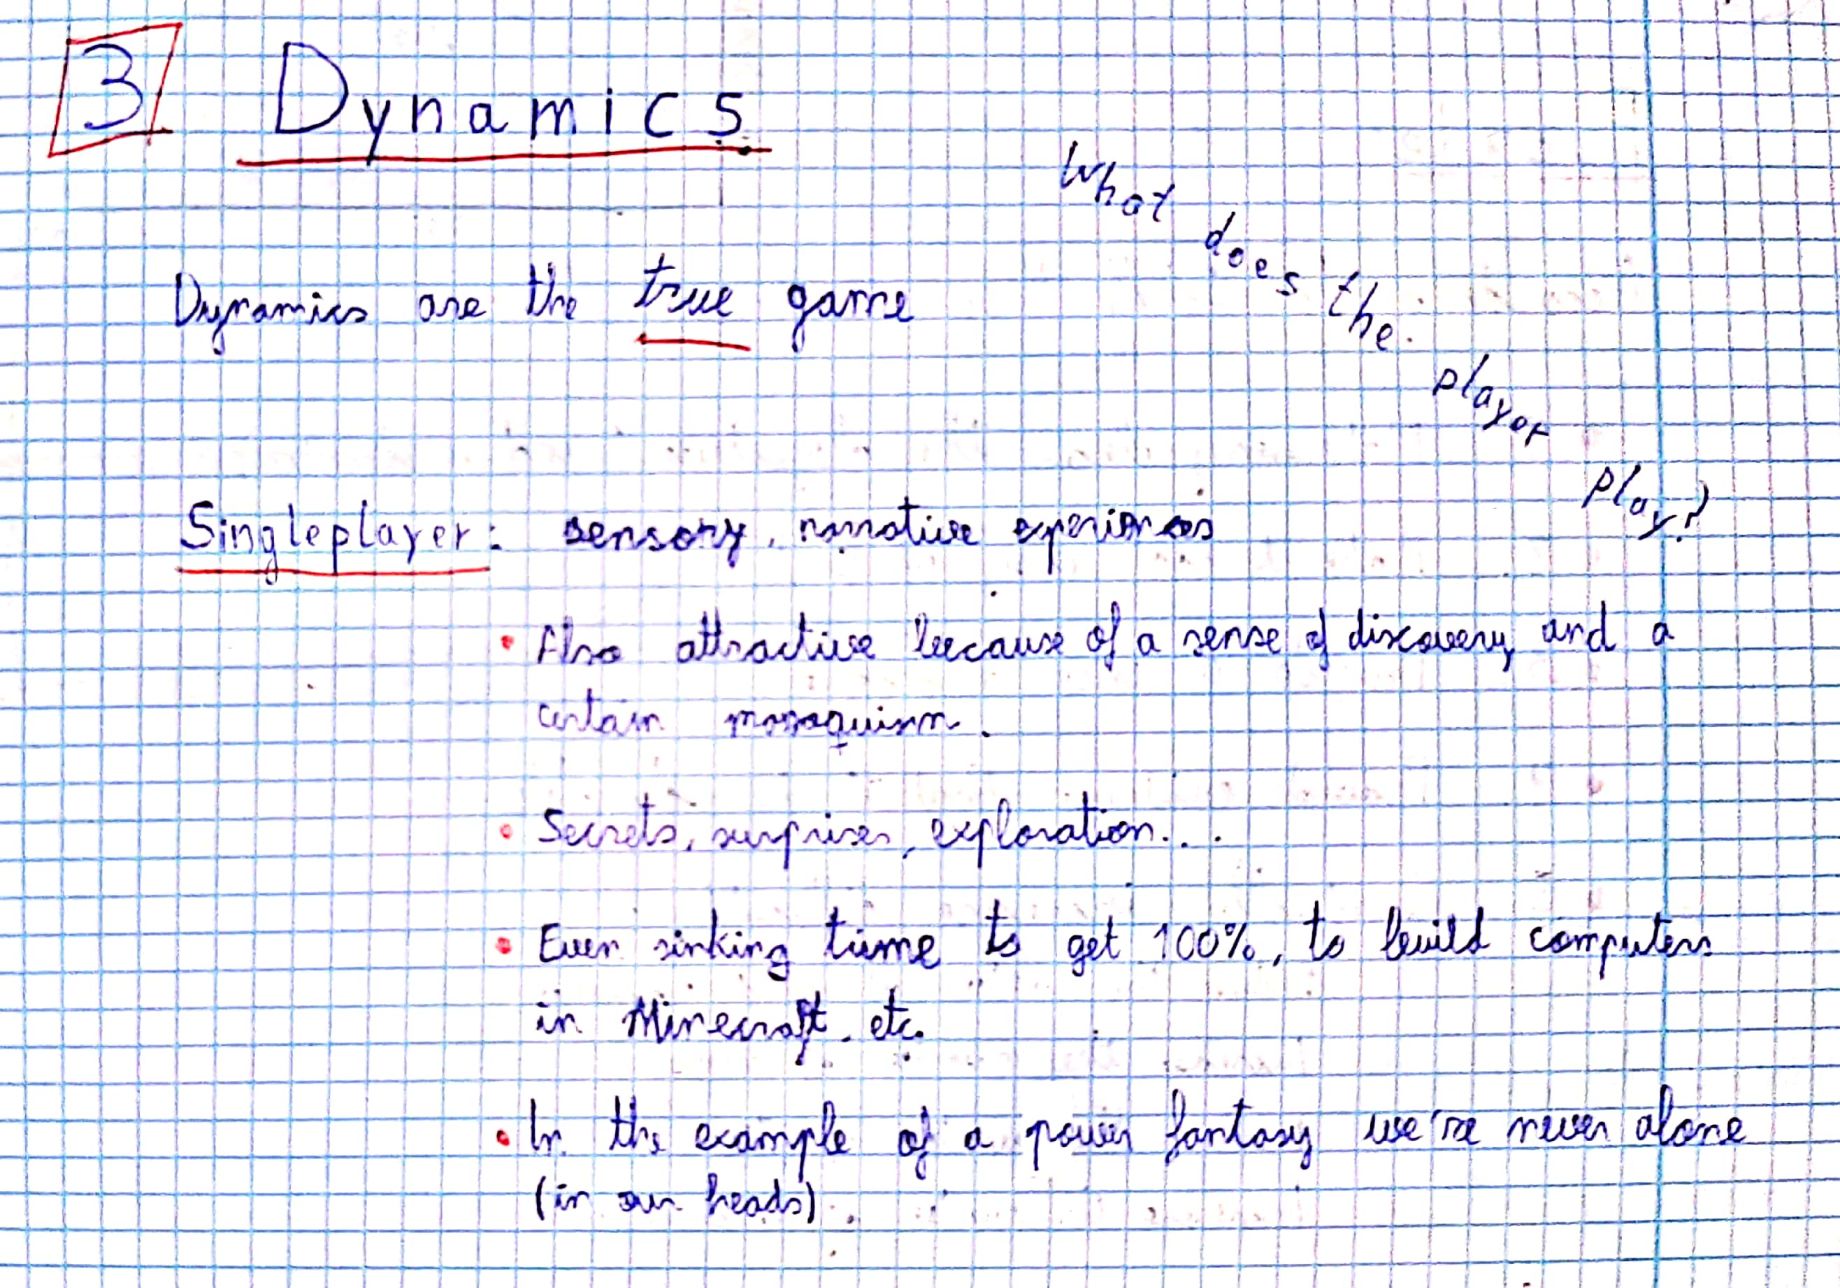 3 Dynamics
What does the player play?
Dynamics are the true game
Singleplayer: sensory, narrative experiences
• Also attractive because of a sense of discovery and a
certain masoquism.
• Secrets, surprises, exploration...
• Even sinking time to get 100%, to build computers
in Minecraft, etc.
• In the example of a power fantasy we're never alone
(in our heads).